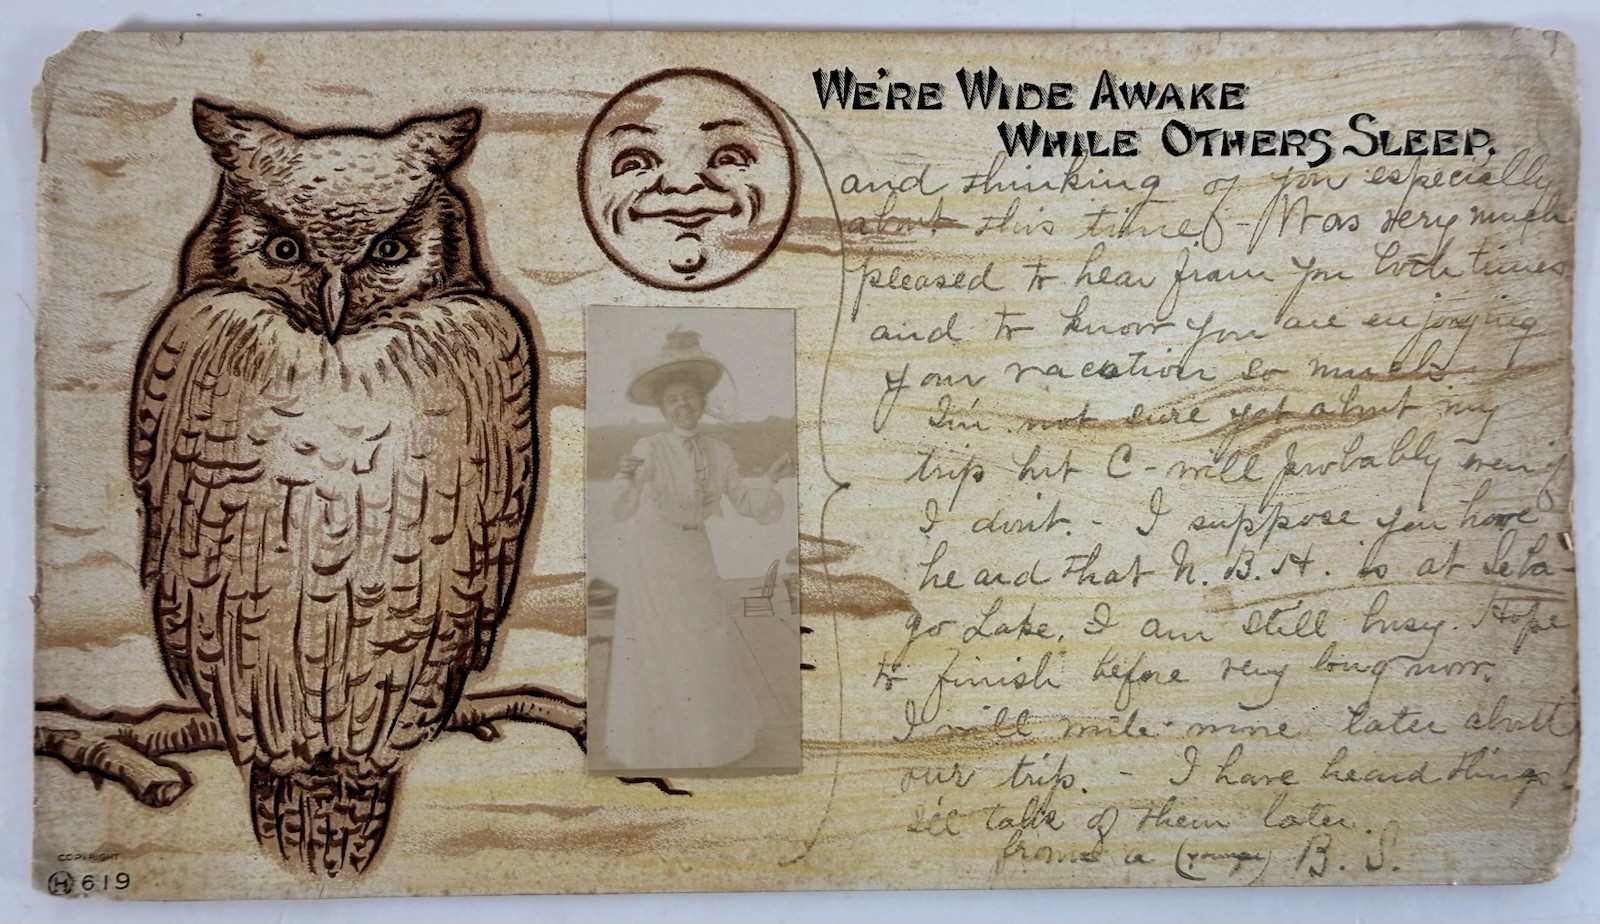 WE'RE WIDE AWAKE
WHILE OTHERS SLEEP.
and thinking of you especially
about this time - Was very much
pleased to hear from you both times
and to know you are enjoying
your vacation so much
I'm not sure yet about my
trip but C - will probably even if
I don't. - I suppose you have
heard that N. B. H. is at Seba-
go Lake. I am still busy. Hope
to finish before very long now.
I will write more later about
our trip. - I have heard things
I'll talk of them later.
from a B. S.
COPYRIGHT
H 619